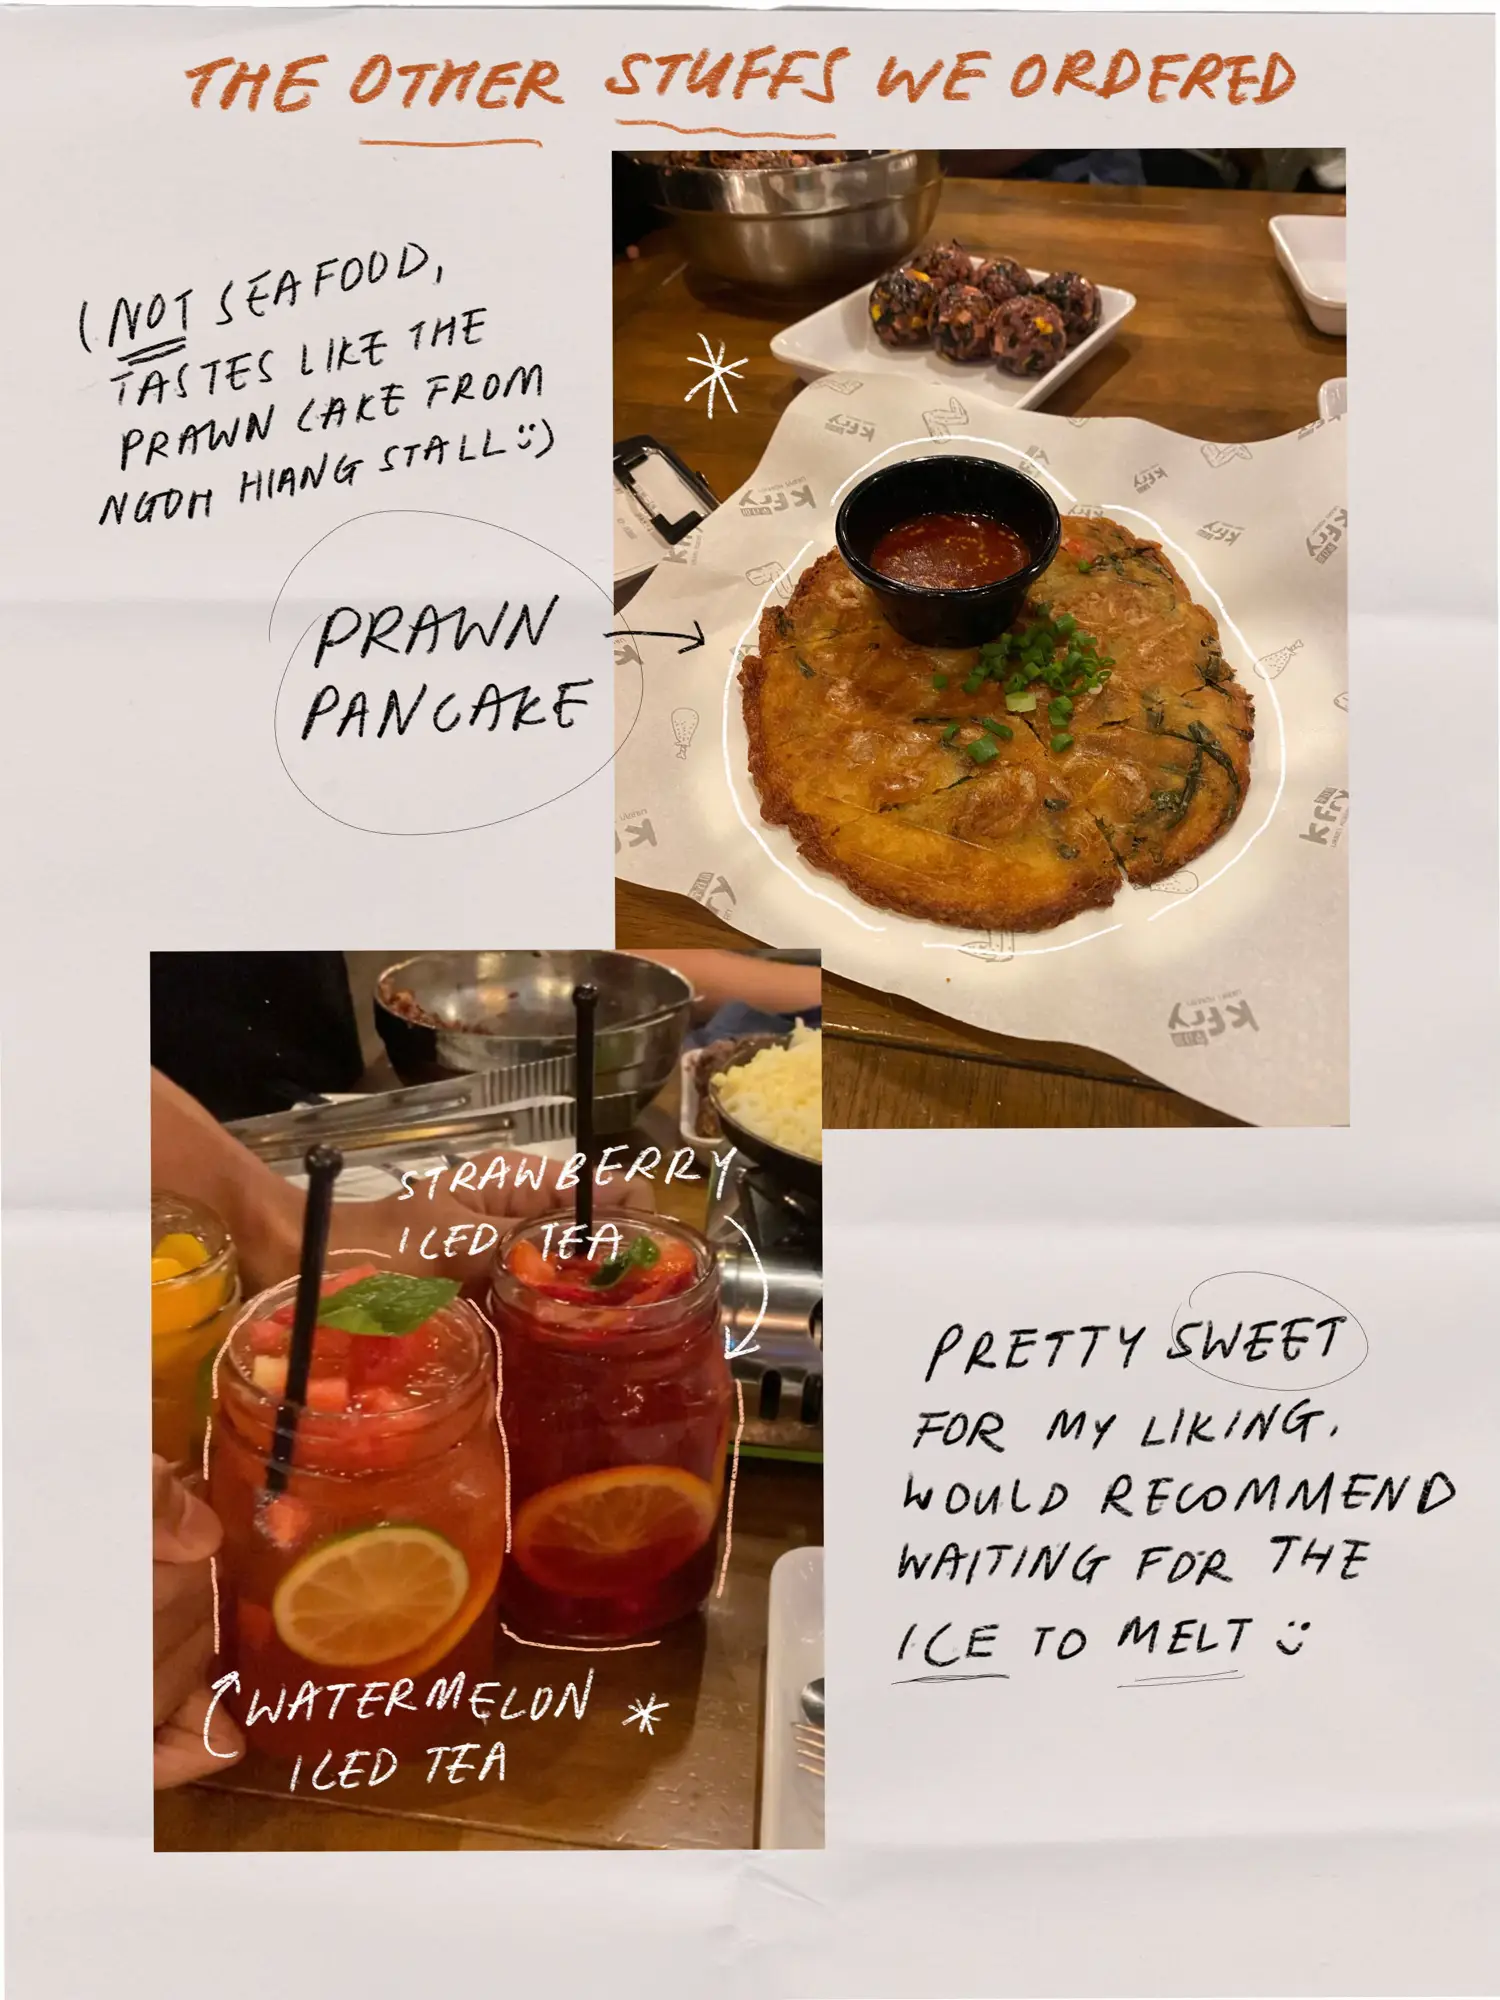 THE OTHER STUFFS WE ORDERED
(NOT SEAFOOD,
TASTES LIKE THE
PRAWN CAKE FROM
NGOH HIANG STALL
PRAWN
PANCAKE
K.Fry
K.Fry
K.Fry
K.Fry
K.Fry
K.Fry
STRAWBERRY
ICED TEA
WATERMELON
ICED TEA
PRETTY SWEET
FOR MY LIKING.
WOULD RECOMMEND
WAITING FOR THE
ICE TO MELT